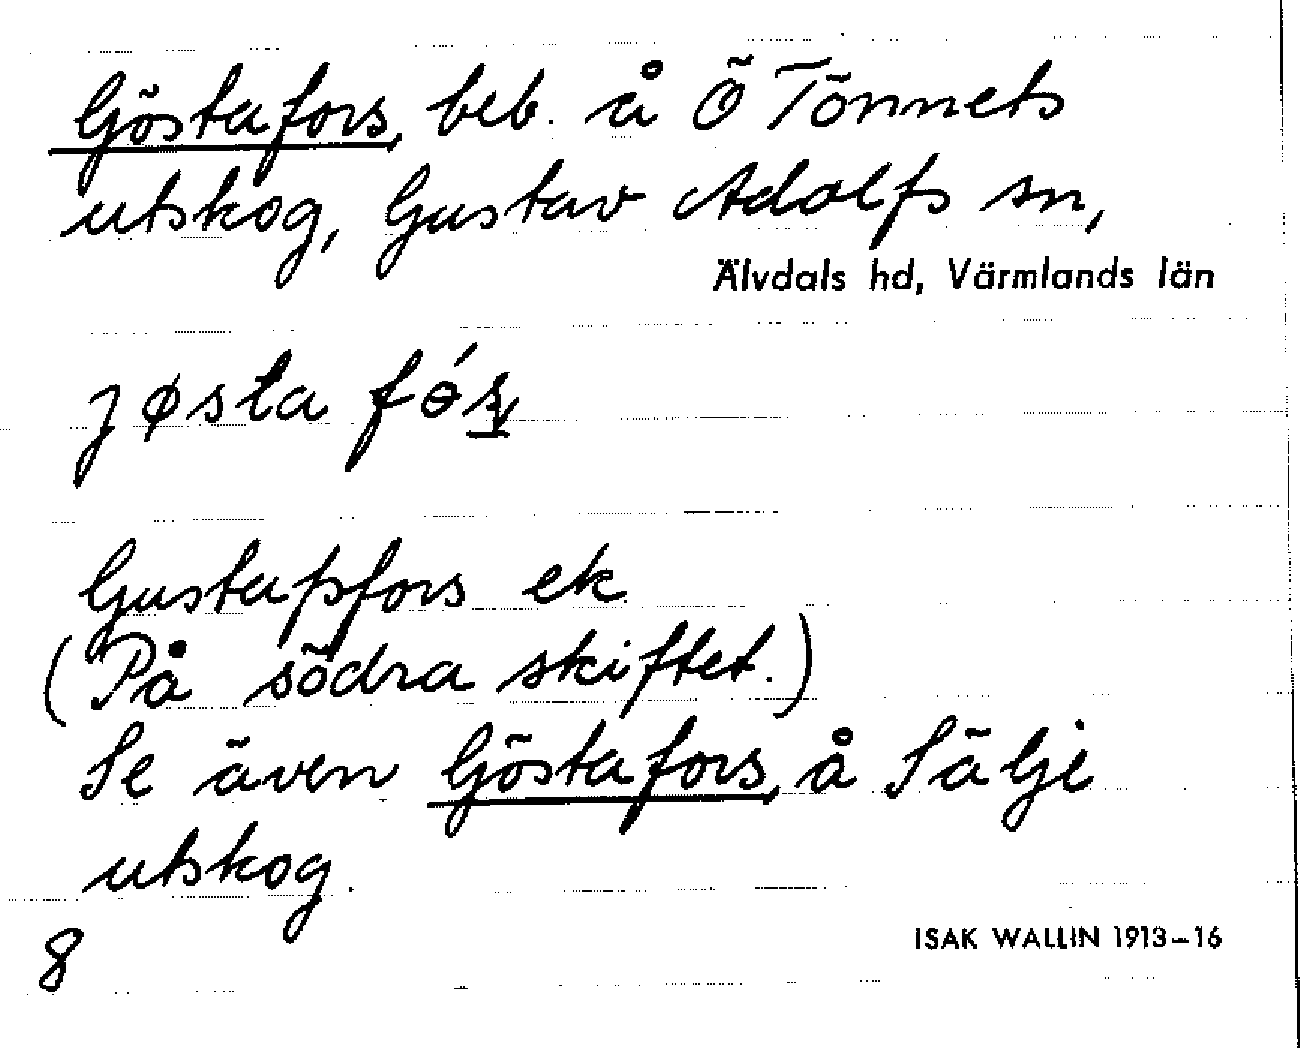 Göstafors, beb. å Ö Tönnets
utskog, Gustav Adolfs sn,
Älvdals hd, Värmlands län
jøsta fɵ́ʂ
Gustapfors ek
(På södra skiftet.)
Se även Göstafors, å Sälje
utskog.
8
ISAK WALLIN 1913–16